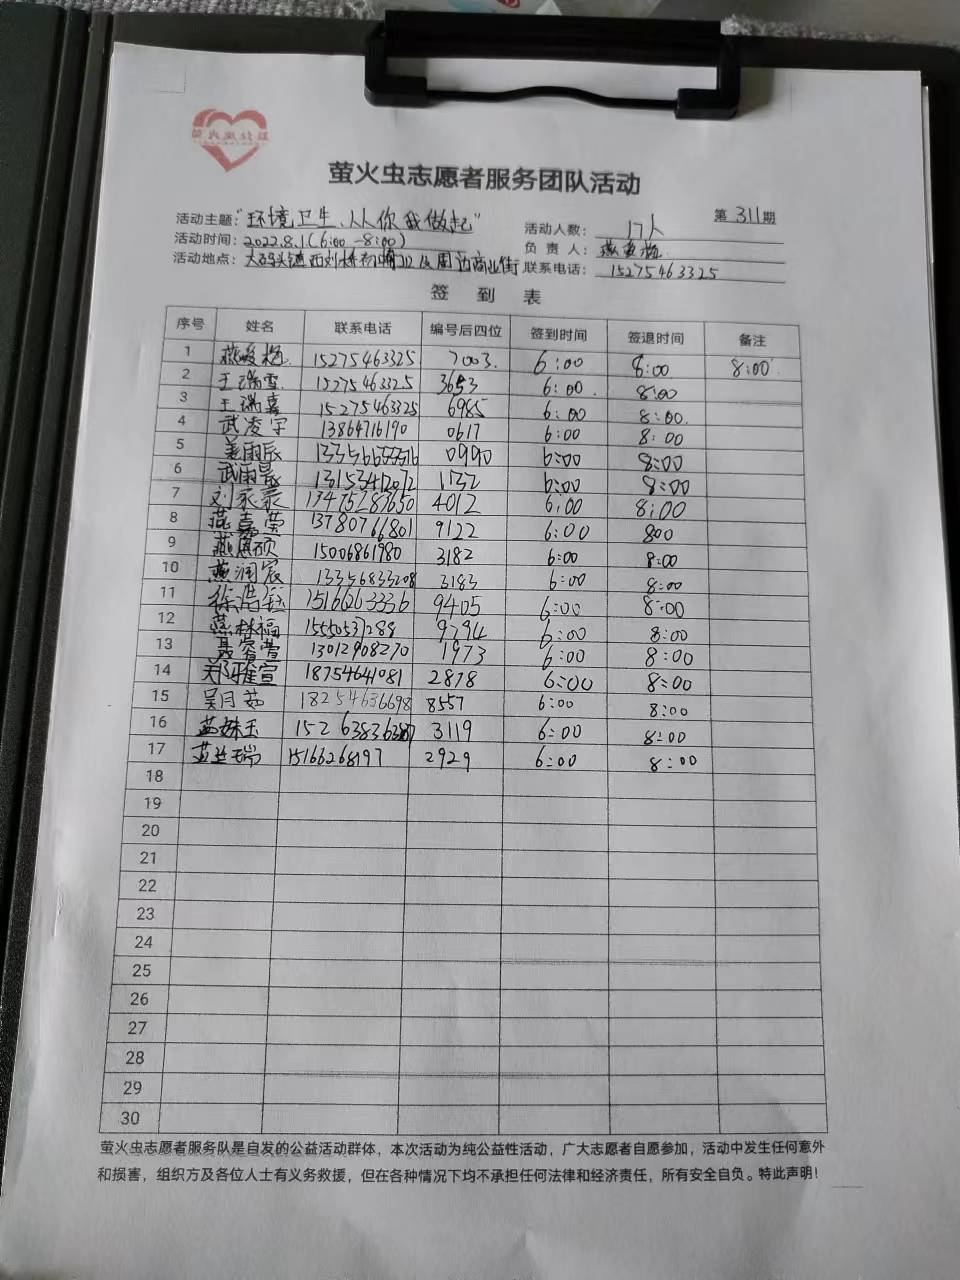 萤火虫志愿者服务团队活动
第311期
活动主题:"环境卫生、从你我做起"
活动人数: 17人
活动时间: 2022.8.1(6:00-8:00)
负责人:
活动地点: 大码头镇西刘桥 及周边商业街
联系电话: 15275463325
签到表
序号 姓名 联系电话 编号后四位 签到时间 签退时间 备注
1 15275463325 7003. 6:00 8:00 8:00
2 王瑞雪 15275463325 3653 6:00 8:00
3 王瑞嘉 15275463325 6985 6:00 8:00
4 武凌宇 13864716190 0617 6:00 8:00
5 姜雨辰 0990 6:00 8:00
6 武雨晨 13153412072 1732 6:00 8:00
7 刘家豪 13475283650 4012 6:00 8:00
8 燕嘉莹 13780766801 9122 6:00 800
9 燕恩硕 15006861980 3182 6:00 8:00
10 燕润宸 13356833208 3183 6:00 8:00
11 15166263336 9405 6:00 8:00
12 燕林福 15550537288 9794 6:00 8:00
13 聂睿萱 13012908270 1973 6:00 8:00
14 18754641081 2878 6:00 8:00
15 吴月茹 18254636698 8557 6:00 8:00
16 3119 6:00 8:00
17 15166268197 2929 6:00 8:00
18
19
20
21
22
23
24
25
26
27
28
29
30
萤火虫志愿者服务队是自发的公益活动群体，本次活动为纯公益性活动，广大志愿者自愿参加，活动中发生任何意外
和损害，组织方及各位人士有义务救援，但在各种情况下均不承担任何法律和经济责任，所有安全自负。特此声明！